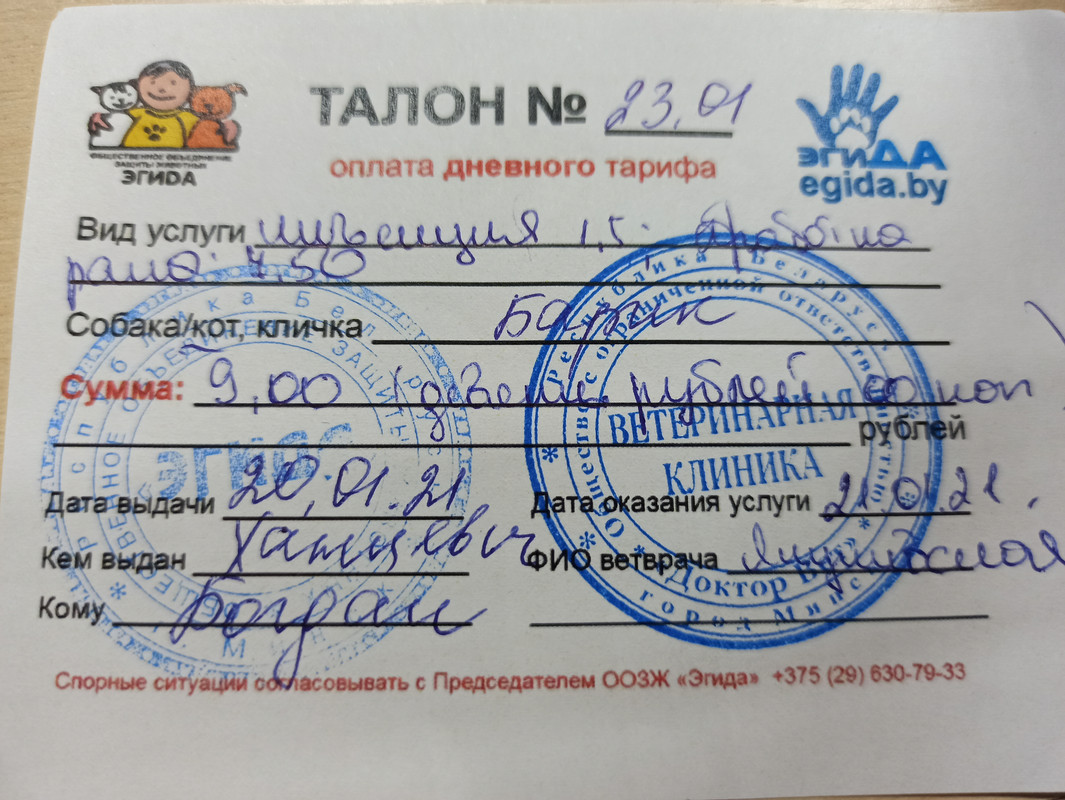 ОБЩЕСТВЕННОЕ ОБЪЕДИНЕНИЕ
ЗАЩИТЫ ЖИВОТНЫХ
ЭГИДА
ТАЛОН № 23,01
оплата дневного тарифа
эгиДА
egida.by
Вид услуги инъекция 1,5;
рана: 7,50
Собака/кот, кличка Барсик
Сумма: 9,00 (девять рублей 00 коп
рублей
Дата выдачи 20.01.21
Дата оказания услуги 21.01.21.
Кем выдан
ФИО ветврача
Кому Богдан
Республика Беларусь
Общество с ограниченной ответственностью
ВЕТЕРИНАРНАЯ
КЛИНИКА
город Минск
Республика Беларусь
ЭГИДА
Спорные ситуации согласовывать с Председателем ООЗЖ «Эгида» +375 (29) 630-79-33